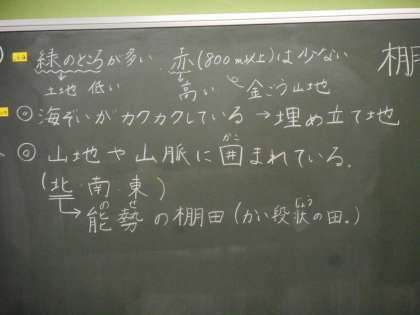 緑のところが多い 赤(800m以上)は少ない 棚
土地 低い 高い 金ごう山地
◎海ぞいがカクカクしている→埋め立て地
◎山地や山脈に囲まれている。
かこ
(北・南・東)
→能勢の棚田(かい段状の田。)
のせ じょう